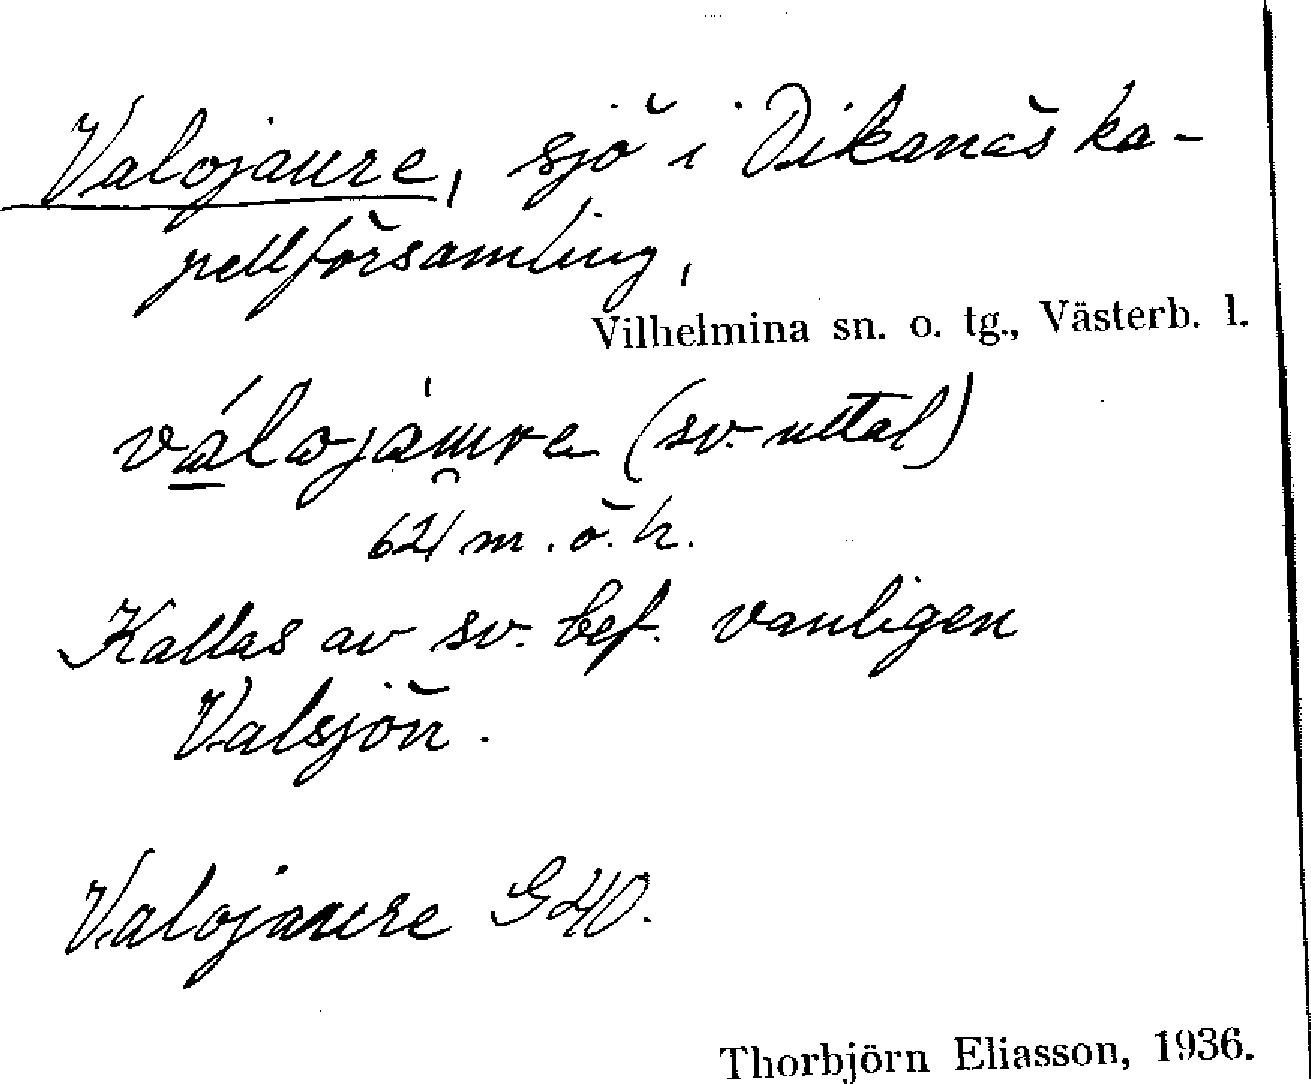 Valojaure, sjö i Dikanäs ka-
pellförsamling,
Vilhelmina sn. o. tg., Västerb. l.
(sv. uttal)
621 m. ö. h.
Kallas av sv. bef. vanligen
Valsjön.
Valojaure G40.
Thorbjörn Eliasson, 1936.